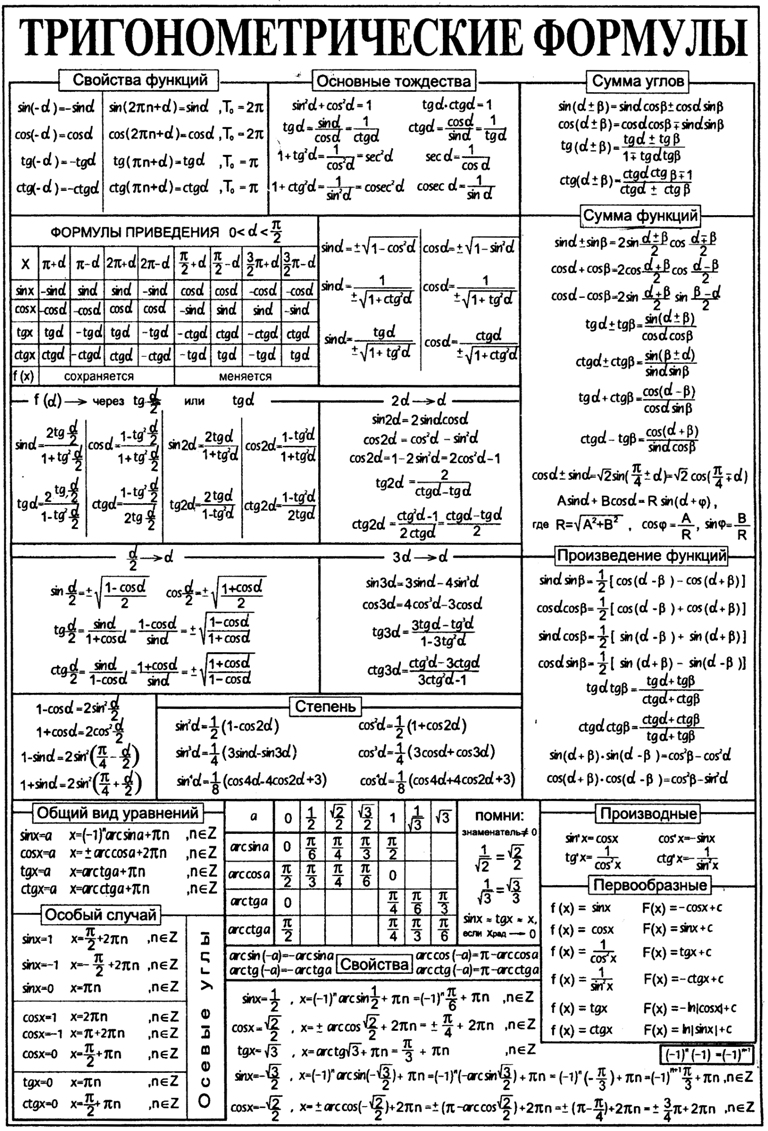 ТРИГОНОМЕТРИЧЕСКИЕ ФОРМУЛЫ
Свойства функций
sin(-α)=-sinα sin(2πn+α)=sinα ,T₀=2π
cos(-α)=cosα cos(2πn+α)=cosα ,T₀=2π
tg(-α)=-tgα tg(πn+α)=tgα ,T₀=π
ctg(-α)=-ctgα ctg(πn+α)=ctgα ,T₀=π
Основные тождества
sin²α+cos²α=1 tgα·ctgα=1
tgα=sinα/cosα=1/ctgα ctgα=cosα/sinα=1/tgα
1+tg²α=1/cos²α=sec²α secα=1/cosα
1+ctg²α=1/sin²α=cosec²α cosec α=1/sinα
Сумма углов
sin(α±β)=sinα cosβ±cosα sinβ
cos(α±β)=cosα cosβ∓sinα sinβ
tg(α±β)=(tgα±tgβ)/(1∓tgα tgβ)
ctg(α±β)=(ctgα ctgβ∓1)/(ctgα ± ctgβ)
ФОРМУЛЫ ПРИВЕДЕНИЯ 0<α<π/2
X π+α π-α 2π+α 2π-α π/2+α π/2-α 3/2π+α 3/2π-α
sinx -sinα sinα sinα -sinα cosα cosα -cosα -cosα
cosx -cosα -cosα cosα cosα -sinα sinα sinα -sinα
tgx tgα -tgα tgα -tgα -ctgα ctgα -ctgα ctgα
ctgx ctgα -ctgα ctgα -ctgα -tgα tgα -tgα tgα
f(x) сохраняется меняется
sinα=±√(1-cos²α) cosα=±√(1-sin²α)
sinα=1/(±√(1+ctg²α)) cosα=1/(±√(1+tg²α))
sinα=tgα/(±√(1+tg²α)) cosα=ctgα/(±√(1+ctg²α))
Сумма функций
sinα±sinβ=2sin (α±β)/2 cos (α∓β)/2
cosα+cosβ=2cos (α+β)/2 cos (α-β)/2
cosα-cosβ=2sin (α+β)/2 sin (β-α)/2
tgα±tgβ=sin(α±β)/(cosα cosβ)
ctgα±ctgβ=sin(β±α)/(sinα sinβ)
tgα+ctgβ=cos(α-β)/(cosα sinβ)
ctgα-tgβ=cos(α+β)/(sinα cosβ)
cosα±sinα=√2sin(π/4±α)=√2 cos(π/4∓α)
Asinα+Bcosα=R sin(α+φ),
где R=√(A²+B²) , cosφ=A/R, sinφ=B/R
f(α)→ через tg α/2 или tgα
sinα=2tg α/2/(1+tg² α/2) cosα=(1-tg² α/2)/(1+tg² α/2) sin2α=2tgα/(1+tg²α) cos2α=(1-tg²α)/(1+tg²α)
tgα=2tg α/2/(1-tg² α/2) ctgα=(1-tg² α/2)/(2tg α/2) tg2α=2tgα/(1-tg²α) ctg2α=(1-tg²α)/(2tgα)
2α→α
sin2α=2sinα cosα
cos2α=cos²α - sin²α
cos2α=1-2sin²α=2cos²α-1
tg2α=2/(ctgα-tgα)
ctg2α=(ctg²α-1)/(2ctgα)=(ctgα-tgα)/2
α/2→α
sin α/2=±√((1-cosα)/2) cos α/2=±√((1+cosα)/2)
tg α/2=sinα/(1+cosα)=(1-cosα)/sinα=±√((1-cosα)/(1+cosα))
ctg α/2=sinα/(1-cosα)=(1+cosα)/sinα=±√((1+cosα)/(1-cosα))
3α→α
sin3α=3sinα-4sin³α
cos3α=4cos³α-3cosα
tg3α=(3tgα-tg³α)/(1-3tg²α)
ctg3α=(ctg³α-3ctgα)/(3ctg²α-1)
Произведение функций
sinα sinβ=1/2[cos(α-β)-cos(α+β)]
cosα cosβ=1/2[cos(α-β)+cos(α+β)]
sinα cosβ=1/2[sin(α-β)+sin(α+β)]
cosα sinβ=1/2[sin(α+β)-sin(α-β)]
tgα tgβ=(tgα+tgβ)/(ctgα+ctgβ)
ctgα ctgβ=(ctgα+ctgβ)/(tgα+tgβ)
sin(α+β)·sin(α-β)=cos²β-cos²α
cos(α+β)·cos(α-β)=cos²β-sin²α
1-cosα=2sin² α/2
1+cosα=2cos² α/2
1-sinα=2sin²(π/4-α/2)
1+sinα=2sin²(π/4+α/2)
Степень
sin²α=1/2(1-cos2α) cos²α=1/2(1+cos2α)
sin³α=1/4(3sinα-sin3α) cos³α=1/4(3cosα+cos3α)
sin⁴α=1/8(cos4α-4cos2α+3) cos⁴α=1/8(cos4α+4cos2α+3)
Общий вид уравнений
sinx=a x=(-1)ⁿarcsina+πn ,n∈Z
cosx=a x=±arccosa+2πn ,n∈Z
tgx=a x=arctga+πn ,n∈Z
ctgx=a x=arcctga+πn ,n∈Z
Особый случай
sinx=1 x=π/2+2πn ,n∈Z
sinx=-1 x=-π/2+2πn ,n∈Z
sinx=0 x=πn ,n∈Z
cosx=1 x=2πn ,n∈Z
cosx=-1 x=π+2πn ,n∈Z
cosx=0 x=π/2+πn ,n∈Z
tgx=0 x=πn ,n∈Z
ctgx=0 x=π/2+πn ,n∈Z
Осевые углы
a 0 1/2 √2/2 √3/2 1 1/√3 √3
arcsina 0 π/6 π/4 π/3 π/2
arccosa π/2 π/3 π/4 π/6 0
arctga 0 π/4 π/6 π/3
arcctga π/2 π/4 π/3 π/6
ПОМНИ:
знаменатель≠ 0
1/√2=√2/2
1/√3=√3/3
sinx ≈ tgx ≈ x,
если Xрад → 0
Производные
sin'x=cosx cos'x=-sinx
tg'x=1/cos²x ctg'x=-1/sin²x
Первообразные
f(x)= sinx F(x)=-cosx+c
f(x)= cosx F(x)=sinx+c
f(x)=1/cos²x F(x)=tgx+c
f(x)=1/sin²x F(x)=-ctgx+c
f(x)= tgx F(x)=-ln|cosx|+c
f(x)= ctgx F(x)=ln|sinx|+c
(-1)ⁿ(-1)=(-1)ⁿ⁺¹
Свойства
arcsin(-a)=-arcsina arccos(-a)=π-arccosa
arctg(-a)=-arctga arcctg(-a)=π-arcctga
sinx=1/2 , x=(-1)ⁿarcsin 1/2+πn=(-1)ⁿπ/6+πn ,n∈Z
cosx=√2/2 , x=±arccos √2/2+2πn=±π/4+2πn ,n∈Z
tgx=√3 , x=arctg√3+πn=π/3+πn ,n∈Z
sinx=-√3/2 , x=(-1)ⁿarcsin(-√3/2)+πn=(-1)ⁿ(-arcsin √3/2)+πn=(-1)ⁿ(-π/3)+πn=(-1)ⁿ⁺¹π/3+πn,n∈Z
cosx=-√2/2 , x=±arccos(-√2/2)+2πn=±(π-arccos √2/2)+2πn=±(π-π/4)+2πn=±3/4π+2πn,n∈Z